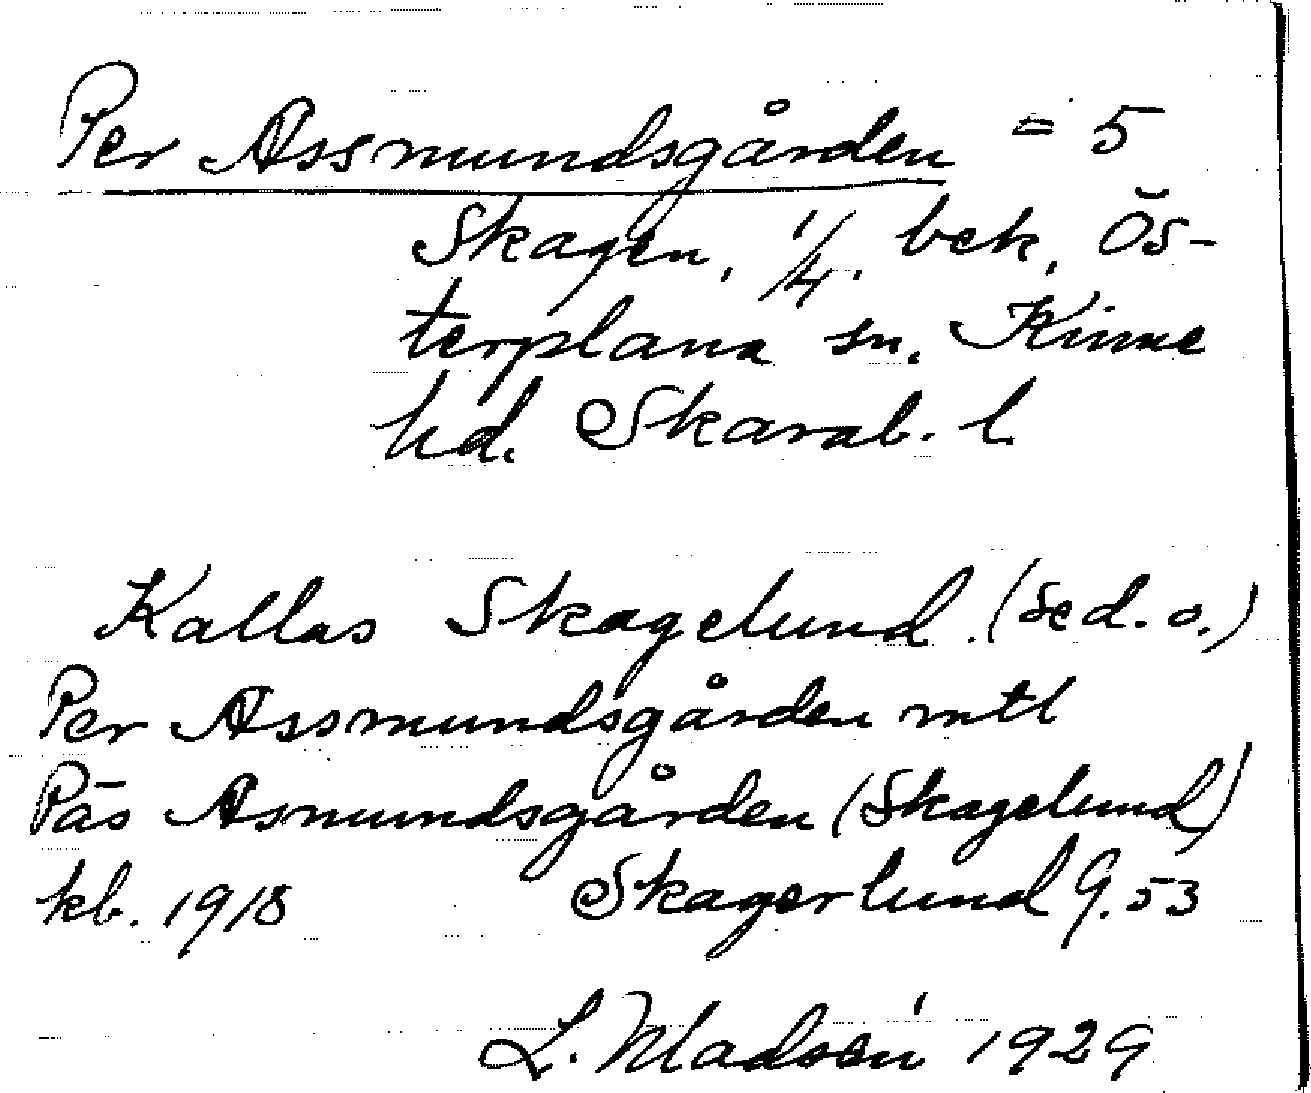 Per Assmundsgården = 5
Skagen, 1/4. bek, Ös-
terplana sn. Kinne
hd. Skarab. l.
Kallas Skagelund. (sed. o.)
Per Assmundsgården mtl
Päs Asmundsgården (Skagelund)
kb. 1918 Skagerlund G. 53
L. Madsén 1929